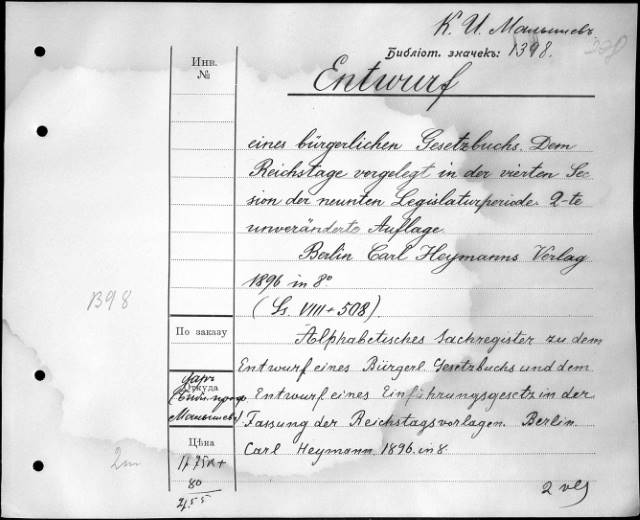 К. И. Малышевъ
Библіот. значекъ: 1398.
Инв.
№
Entwurf
eines bürgerlichen Gesetzbuchs. Dem
Reichstage vorgelegt in der vierten Ses
sion der neunten Legislaturperiode 2-te
unveränderte Auflage
Berlin Carl Heymanns Verlag
1896 in 8°
1398
(Ss. VIII + 508).
По заказу
Alphabetisches Sachregister zu dem
Entwurf eines Bürgerl. Gesetzbuchs und dem
Откуда
даръ
(Библ. проф.
Малышева)
Entwurf eines Einführungsgesetz in der
Fassung der Reichstagsvorlagen. Berlin.
Carl Heymann. 1896. in 8.
Цѣна
80
2 vls